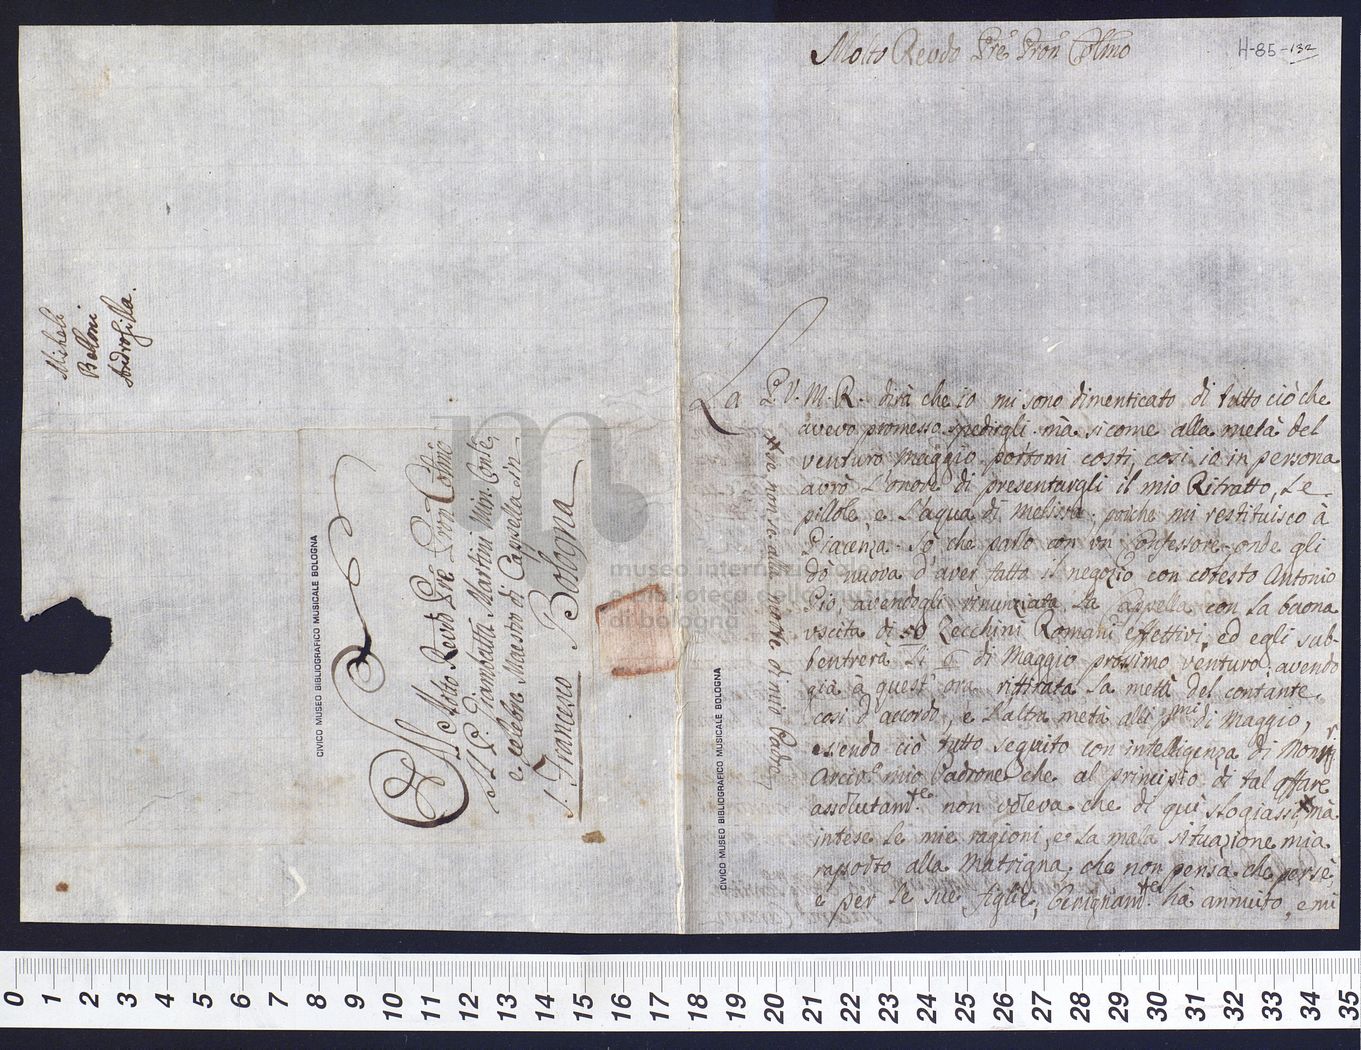 Michele
Belloni
Molto Revdo Pre Pron Colmo
Il P. Giambatta Martini Min. Conle,
e celebre Maestro di Cappella in
S. Francesco Bologna
CIVICO MUSEO BIBLIOGRAFICO MUSICALE BOLOGNA
museo internazionale
e biblioteca della musica
di bologna
H-85-132
Molto Revdo Pre Pron Colmo
La P. V. M. R. dirà che io mi sono dimenticato di tutto ciò che
avevo promesso spedirgli. mà siccome alla metà del
venturo Maggio portomi costì, così io in persona
avrò l'onore di presentargli il mio Ritratto, le
pillole, e l'aqua di melissa. poiche mi restituisco à
Piacenza. Sò che parlo con un Confessore onde gli
dò nuova d'aver fatto il negozio con cotesto Antonio
Pio, avendogli rinunziata la Cappella con la buona
uscita di 50 Zecchini Romani effettivi, ed egli sub-
bentrerà li 6 di Maggio prossimo venturo: avendo
già à quest'ora ritirata la metà del contante
così d'accordo, e l'altra metà alli pmi di Maggio,
essendo ciò tutto seguito con intelligenza di Monsr
Arcivo mio Padrone che al principio di tal affare
assolutamte non voleva che di quì sloggiassi, mà
intese le mie ragioni, e la mala situazione mia
rapporto alla Matrigna, che non pensa che per sè,
e per le sue figlie, benignamte hà annuito, e mi
CIVICO MUSEO BIBLIOGRAFICO MUSICALE BOLOGNA
0 1 2 3 4 5 6 7 8 9 10 11 12 13 14 15 16 17 18 19 20 21 22 23 24 25 26 27 28 29 30 31 32 33 34 35